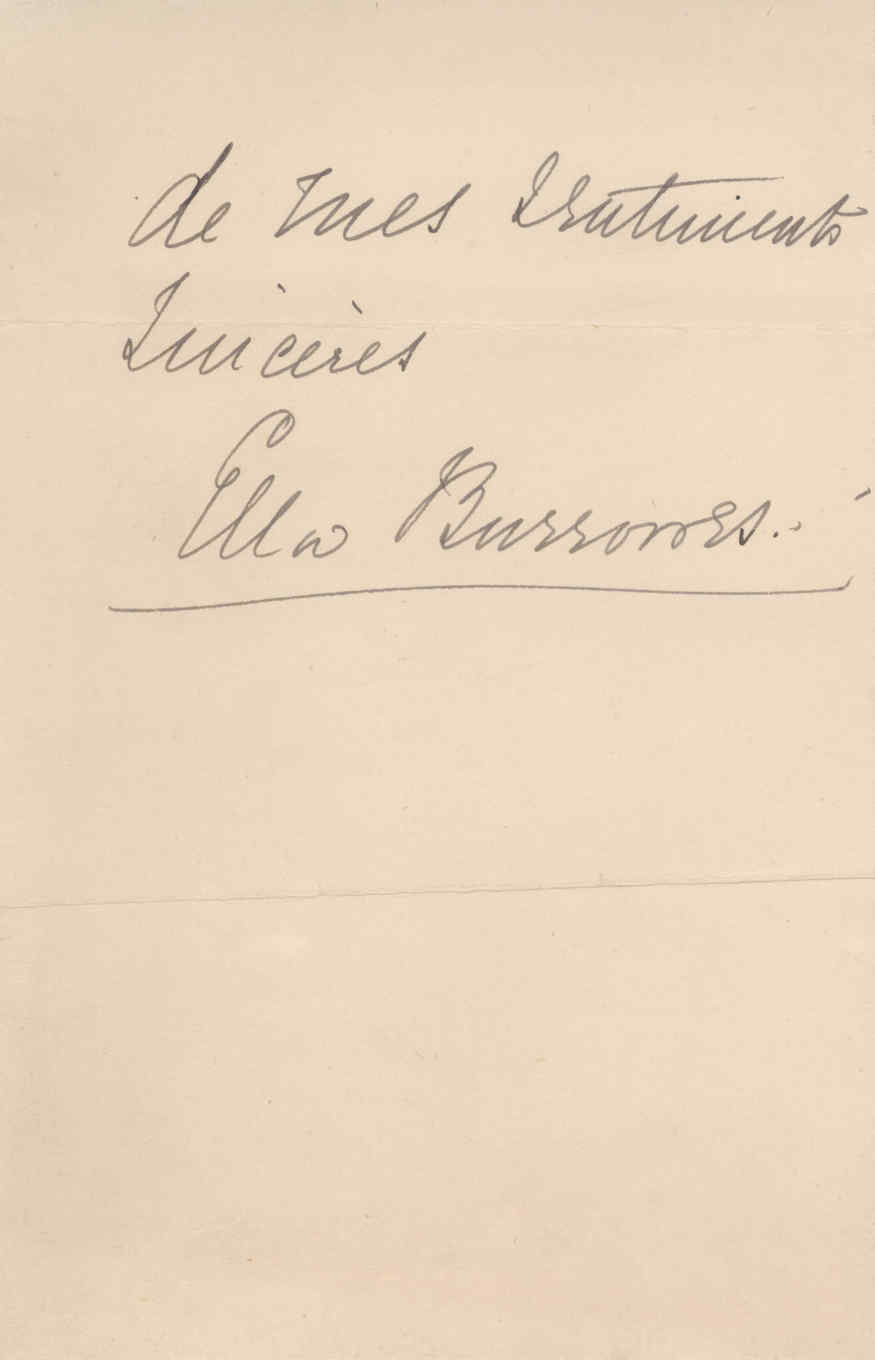 de mes sentiments
sincères
Ella Burrowes.